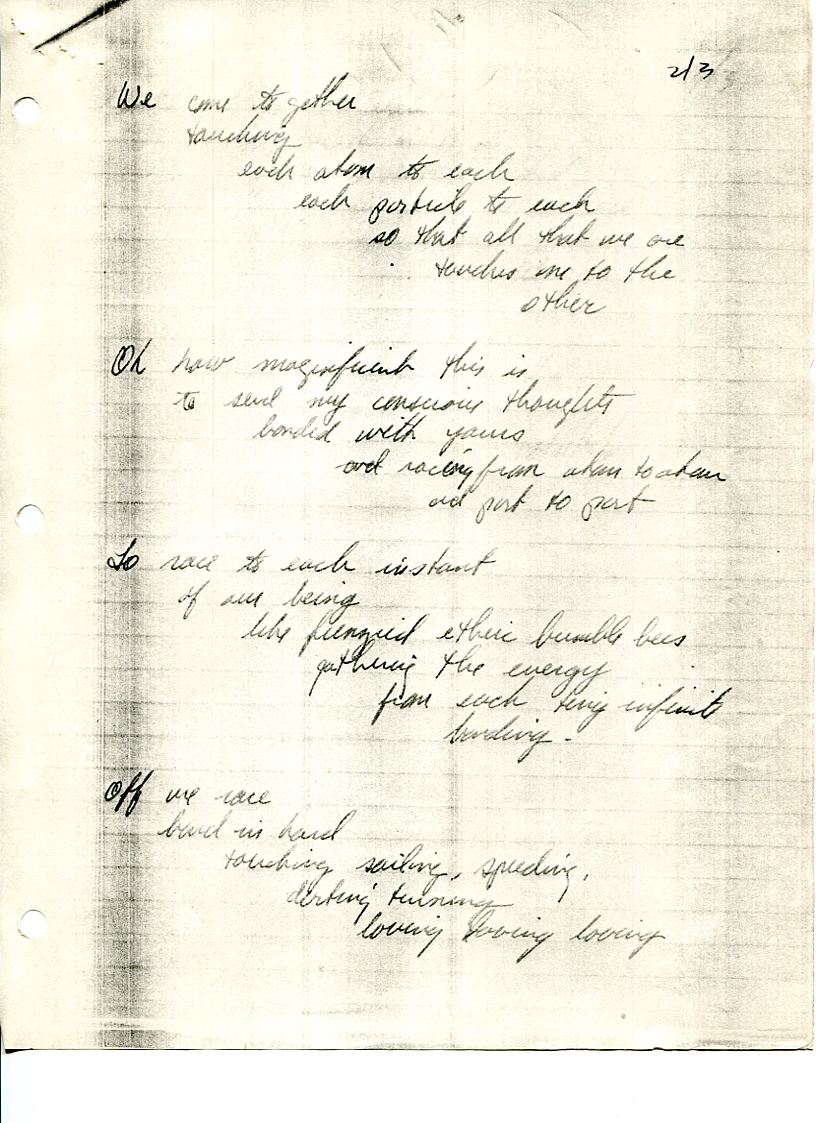 2/3
We come to gether
touching
each atom to each
each particle to each
so that all that we are
touches one to the
other
Oh how maginficent this is
to send my conscious thoughts
bonded with yours
and racing from atom to atom
and part to part
To race to each instant
of our being
like frenzied etheric bumble bees
gathering the energy
from each tiny infinite
bonding.
Off we race
hand in hand
touching sailing, speeding,
darting turning
loving loving loving